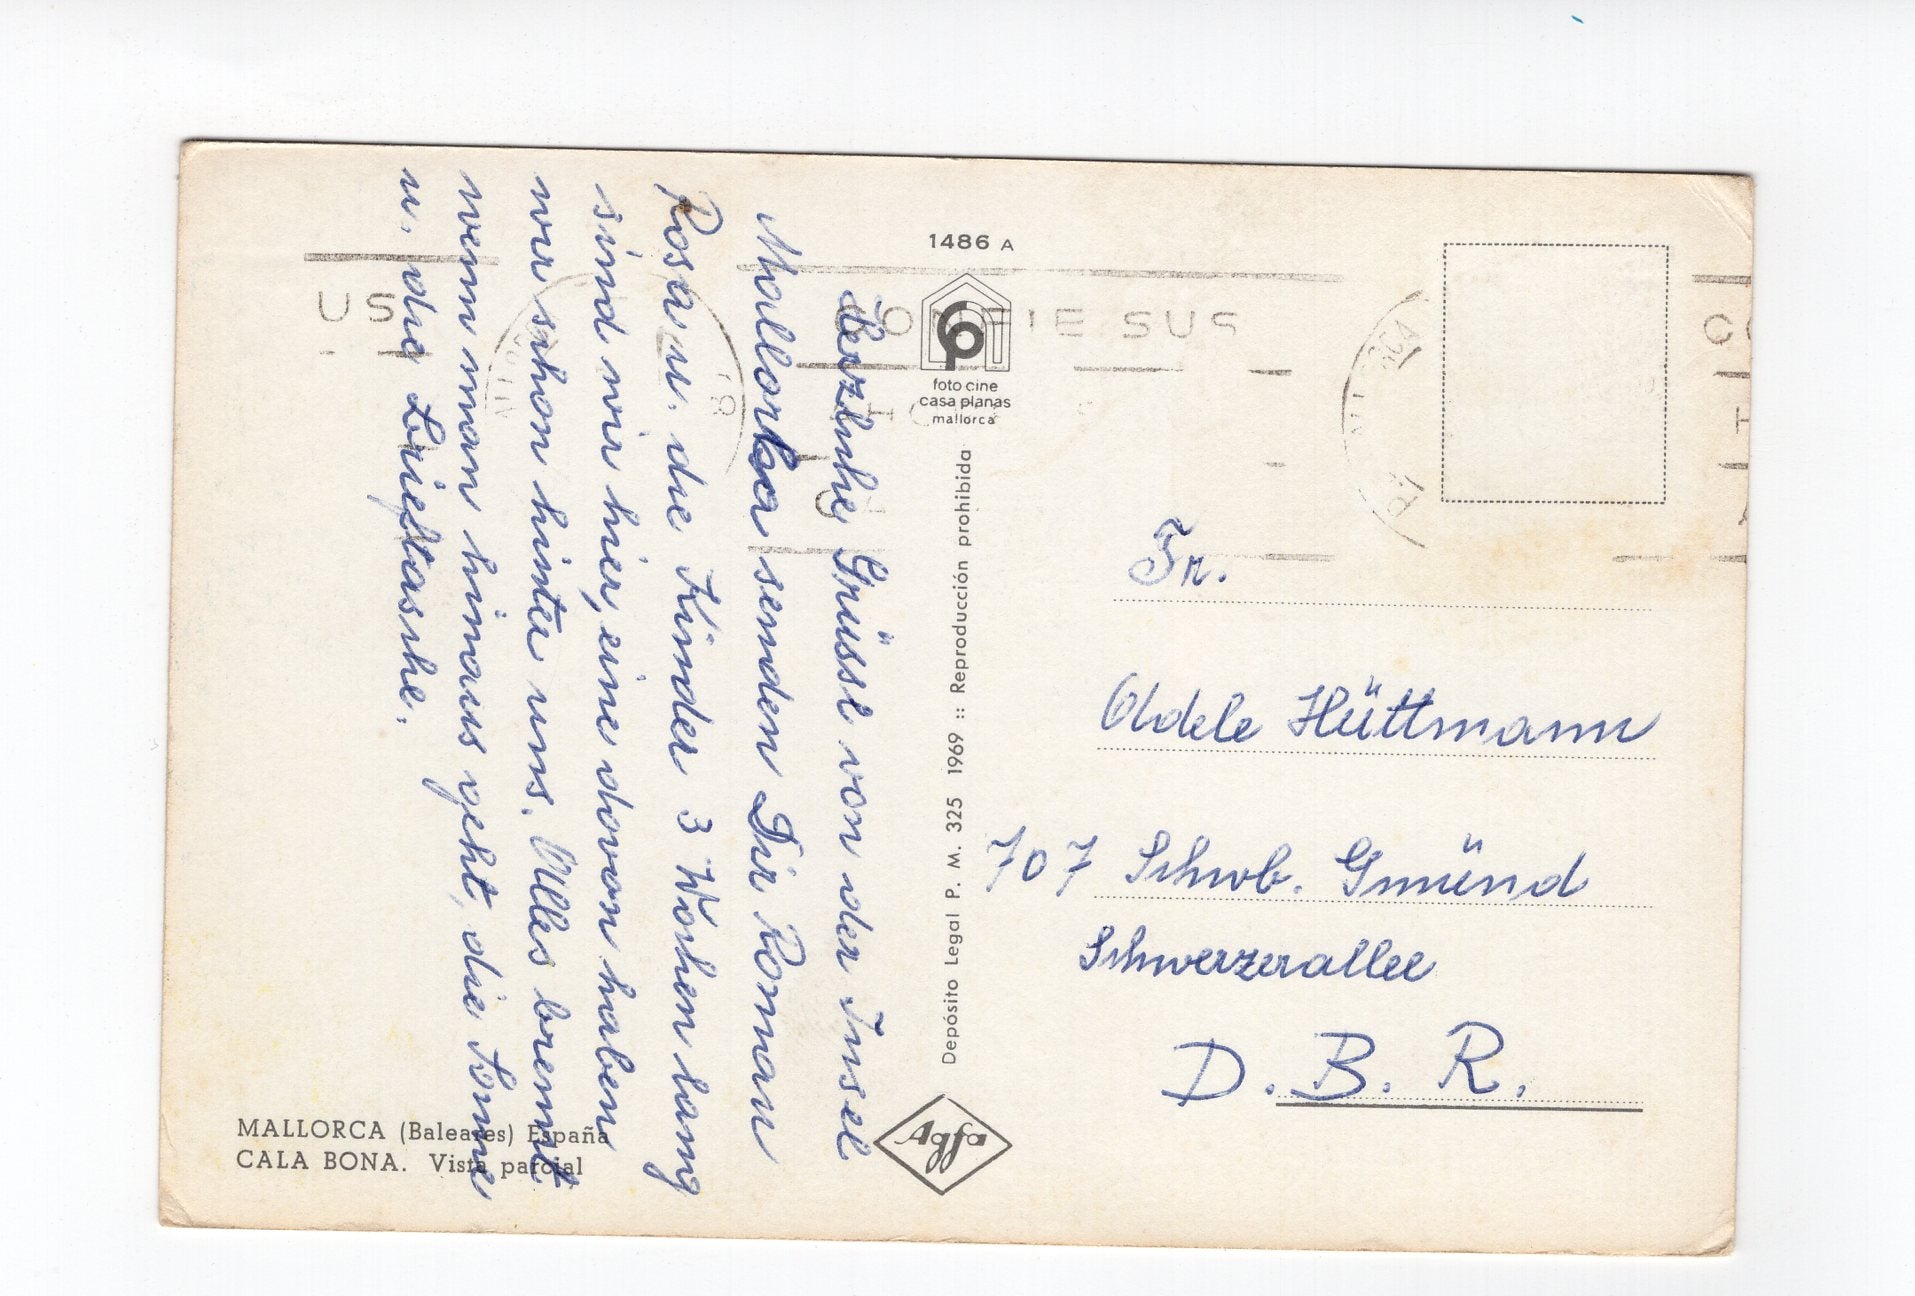 Herzliche Grüsse von der Insel
Mallorka senden Dir Roman
Rosa u. die Kinder 3 Wochen lang
sind wir hier, eine davon haben
wir schon hinter uns. Alles brennt
wenn man hinaus geht, die Sonne
u. die Brieftasche.
MALLORCA (Baleares) España
CALA BONA. Vista parcial
1486 A
foto cine
casa planas
mallorca
Depósito Legal P. M. 325 1969 :: Reproducción prohibida
Agfa
US
CONFIE SUS
Fr.
Adele Hüttmann
707 Schwb. Gmünd
Schwerzerallee
D. B. R.